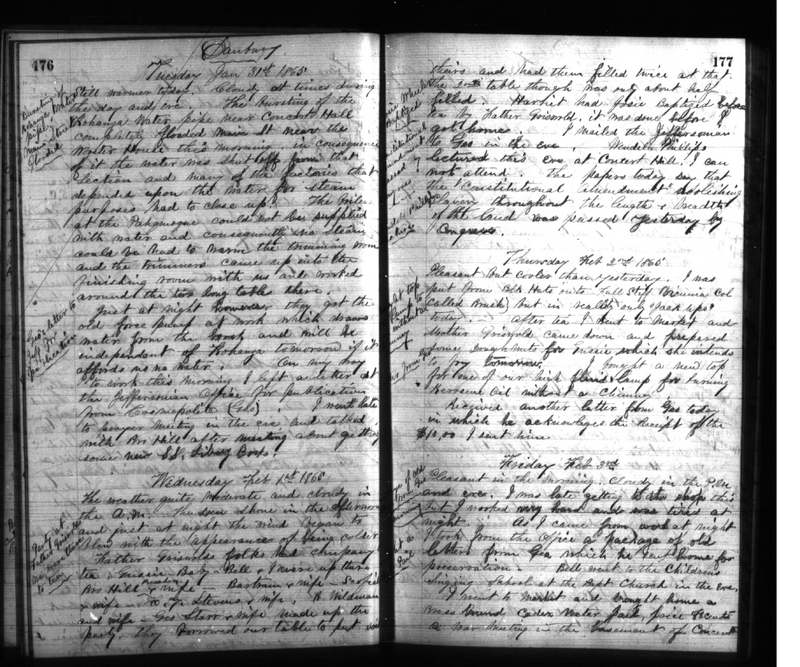 176
Danbury.
Tuesday Jan 31st 1865
Still warmer today. Cloudy at times during
the day and eve. The bursting of the
Kohanga Water pipe near Concert Hall
completely flooded Main St near the
Wooster House this morning in consequence
of it the water was shut off from that
section and many of the factories that
depended upon the water for steam
purposes had to close up. The boiler
at the Pahquioque could not be supplied
with water and consequently no steam
could be had to warm the trimming room
and the trimmers came up into the
finishing room with us and worked
around the two long tables there.
Just at night however they got the
old force pump at work which draws
water from the brook and will be
independent of Kohanga tomorrow if it
affords us no water. On my way
to work this morning I left a letter at
the Jeffersonian Office for publication
from Cosmopolite (Geo). I went late
to prayer meeting in the eve and talked
with Bro Hill after meeting about getting
some new S.S. Library Books.
Wednesday Feb 1st 1865
The weather quite moderate and cloudy in
the A.M. The sun shone in the afternoon
and just at night the wind began to
blow with the appearance of being colder.
Father Griswolds folks had company
to tea Bell & I were up there
Bro Hill & wife Bartram & wife
& wife Stevens & wife Wildman
and wife Geo Starr & wife made up the
party. they borrowed our table to put
177
theirs and had them filled twice at that.
the 2nd table though was only about half
filled. Harriet had Josie Baptized before
tea by Father Griswold. it was done before I
got home. I mailed the Jeffersonian
to Geo in the eve. Wendell Phillips
lectured this eve at Concert Hall. I can
not attend. The papers today say that
the "Constitutional Amendment" abolishing
Slavery throughout the length & breadth
of the land was passed yesterday by
Congress.
Thursday Feb 2nd 1865
Pleasant but cooler than yesterday. I was
put from Blk Hats onto Full Stiff Vienna Col
(called Brush) but in reality only "Jack ups"
today. After tea I went to Market and
Mother Griswold came down and prepared
some for which she intends
to tomorrow. bought a new top
for one of our high lamp for burning
Kerosene Oil without a Chimney
Received another letter from Geo today
in which he acknowledges the receipt of the
$10.00 I sent him.
Friday Feb 3rd
Pleasant in the morning. Cloudy in the P.M.
and eve. I was late getting to the shop this
but I worked very hard and was tired at
night. As I came from work at night
I took from the Office a package of old
letters from Geo which he sent home for
preservation. Bell went to the Childrens
Singing School at the Bapt Church in the eve.
I went to Market and bought home a
Brass bound Cedar Water Pail, price
a War Meeting in the basement of Concert